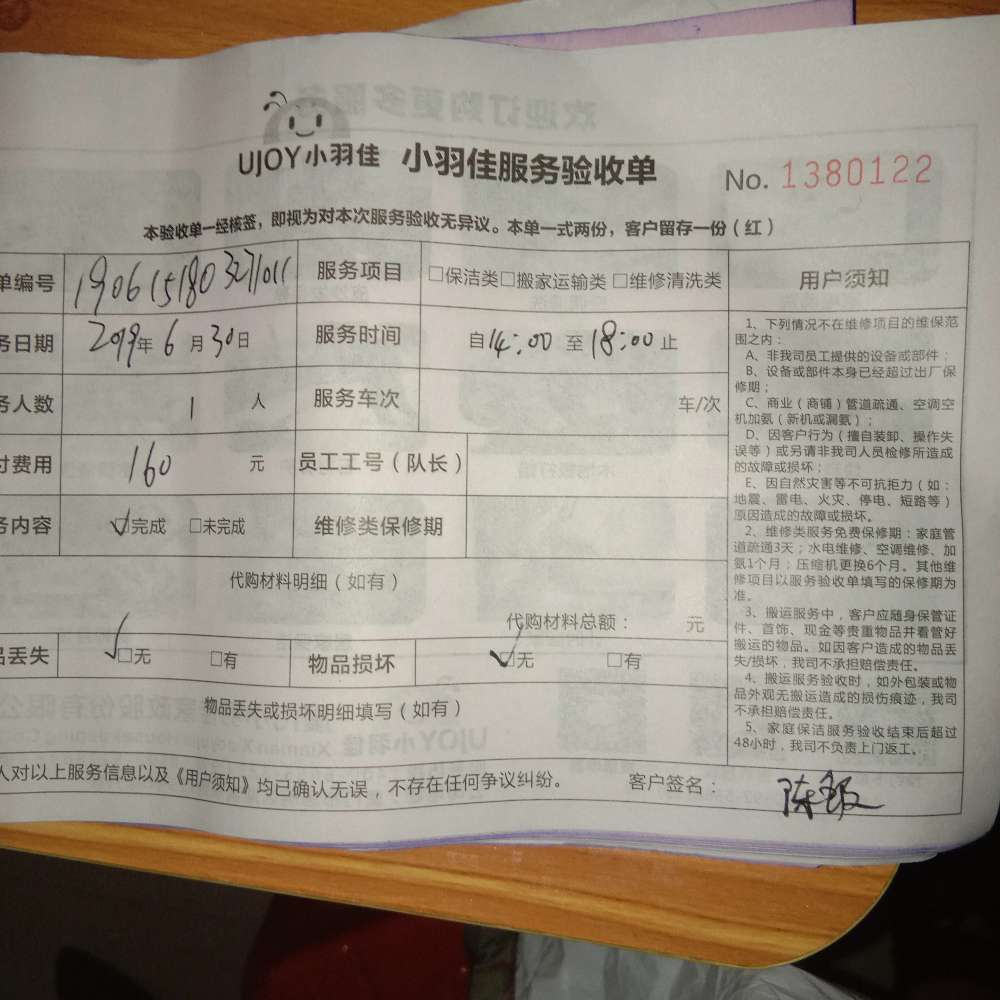 UJOY小羽佳 小羽佳服务验收单 No. 1380122
本验收单一经核签，即视为对本次服务验收无异议。本单一式两份，客户留存一份（红）
单编号 19061518032711011 服务项目 □保洁类□搬家运输类□维修清洗类
务日期 2019年6月30日 服务时间 自14:00至18:00止
务人数 1 人 服务车次 车/次
付费用 160 元 员工工号（队长）
务内容 ☑完成 □未完成 维修类保修期
代购材料明细（如有）
代购材料总额： 元
品丢失 ☑无 □有 物品损坏 ☑无 □有
物品丢失或损坏明细填写（如有）
人对以上服务信息以及《用户须知》均已确认无误，不存在任何争议纠纷。 客户签名：
用户须知
1、下列情况不在维修项目的维保范
围之内：
A、非我司员工提供的设备或部件；
B、设备或部件本身已经超过出厂保
修期；
C、商业（商铺）管道疏通、空调空
机加氨（新机或漏氨）；
D、因客户行为（擅自装卸、操作失
误等）或另请非我司人员检修所造成
的故障或损坏；
E、因自然灾害等不可抗拒力（如：
地震、雷电、火灾、停电、短路等）
原因造成的故障或损坏。
2、维修类服务免费保修期：家庭管
道疏通3天；水电维修、空调维修、加
氨1个月；压缩机更换6个月。其他维
修项目以服务验收单填写的保修期为
准。
3、搬运服务中，客户应随身保管证
件、首饰、现金等贵重物品并看管好
搬运的物品。如因客户造成的物品丢
失/损坏，我司不承担赔偿责任。
4、搬运服务验收时，如外包装或物
品外观无搬运造成的损伤痕迹，我司
不承担赔偿责任。
5、家庭保洁服务验收结束后超过
48小时，我司不负责上门返工。